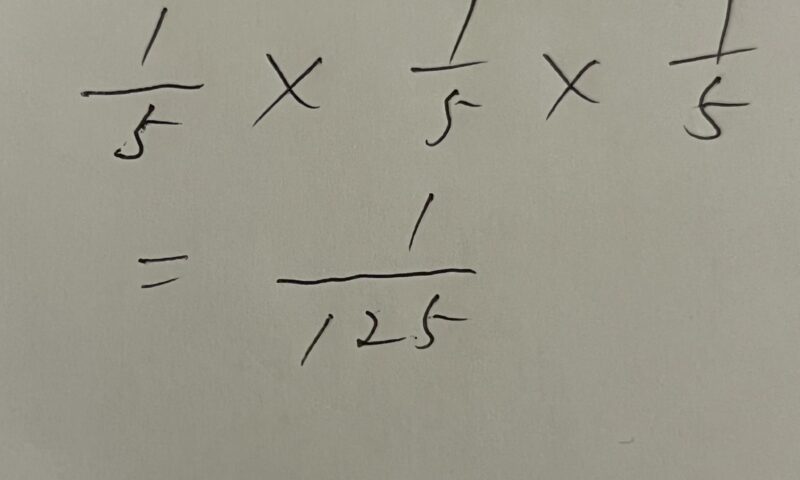 1/5 × 1/5 × 1/5
= 1/125